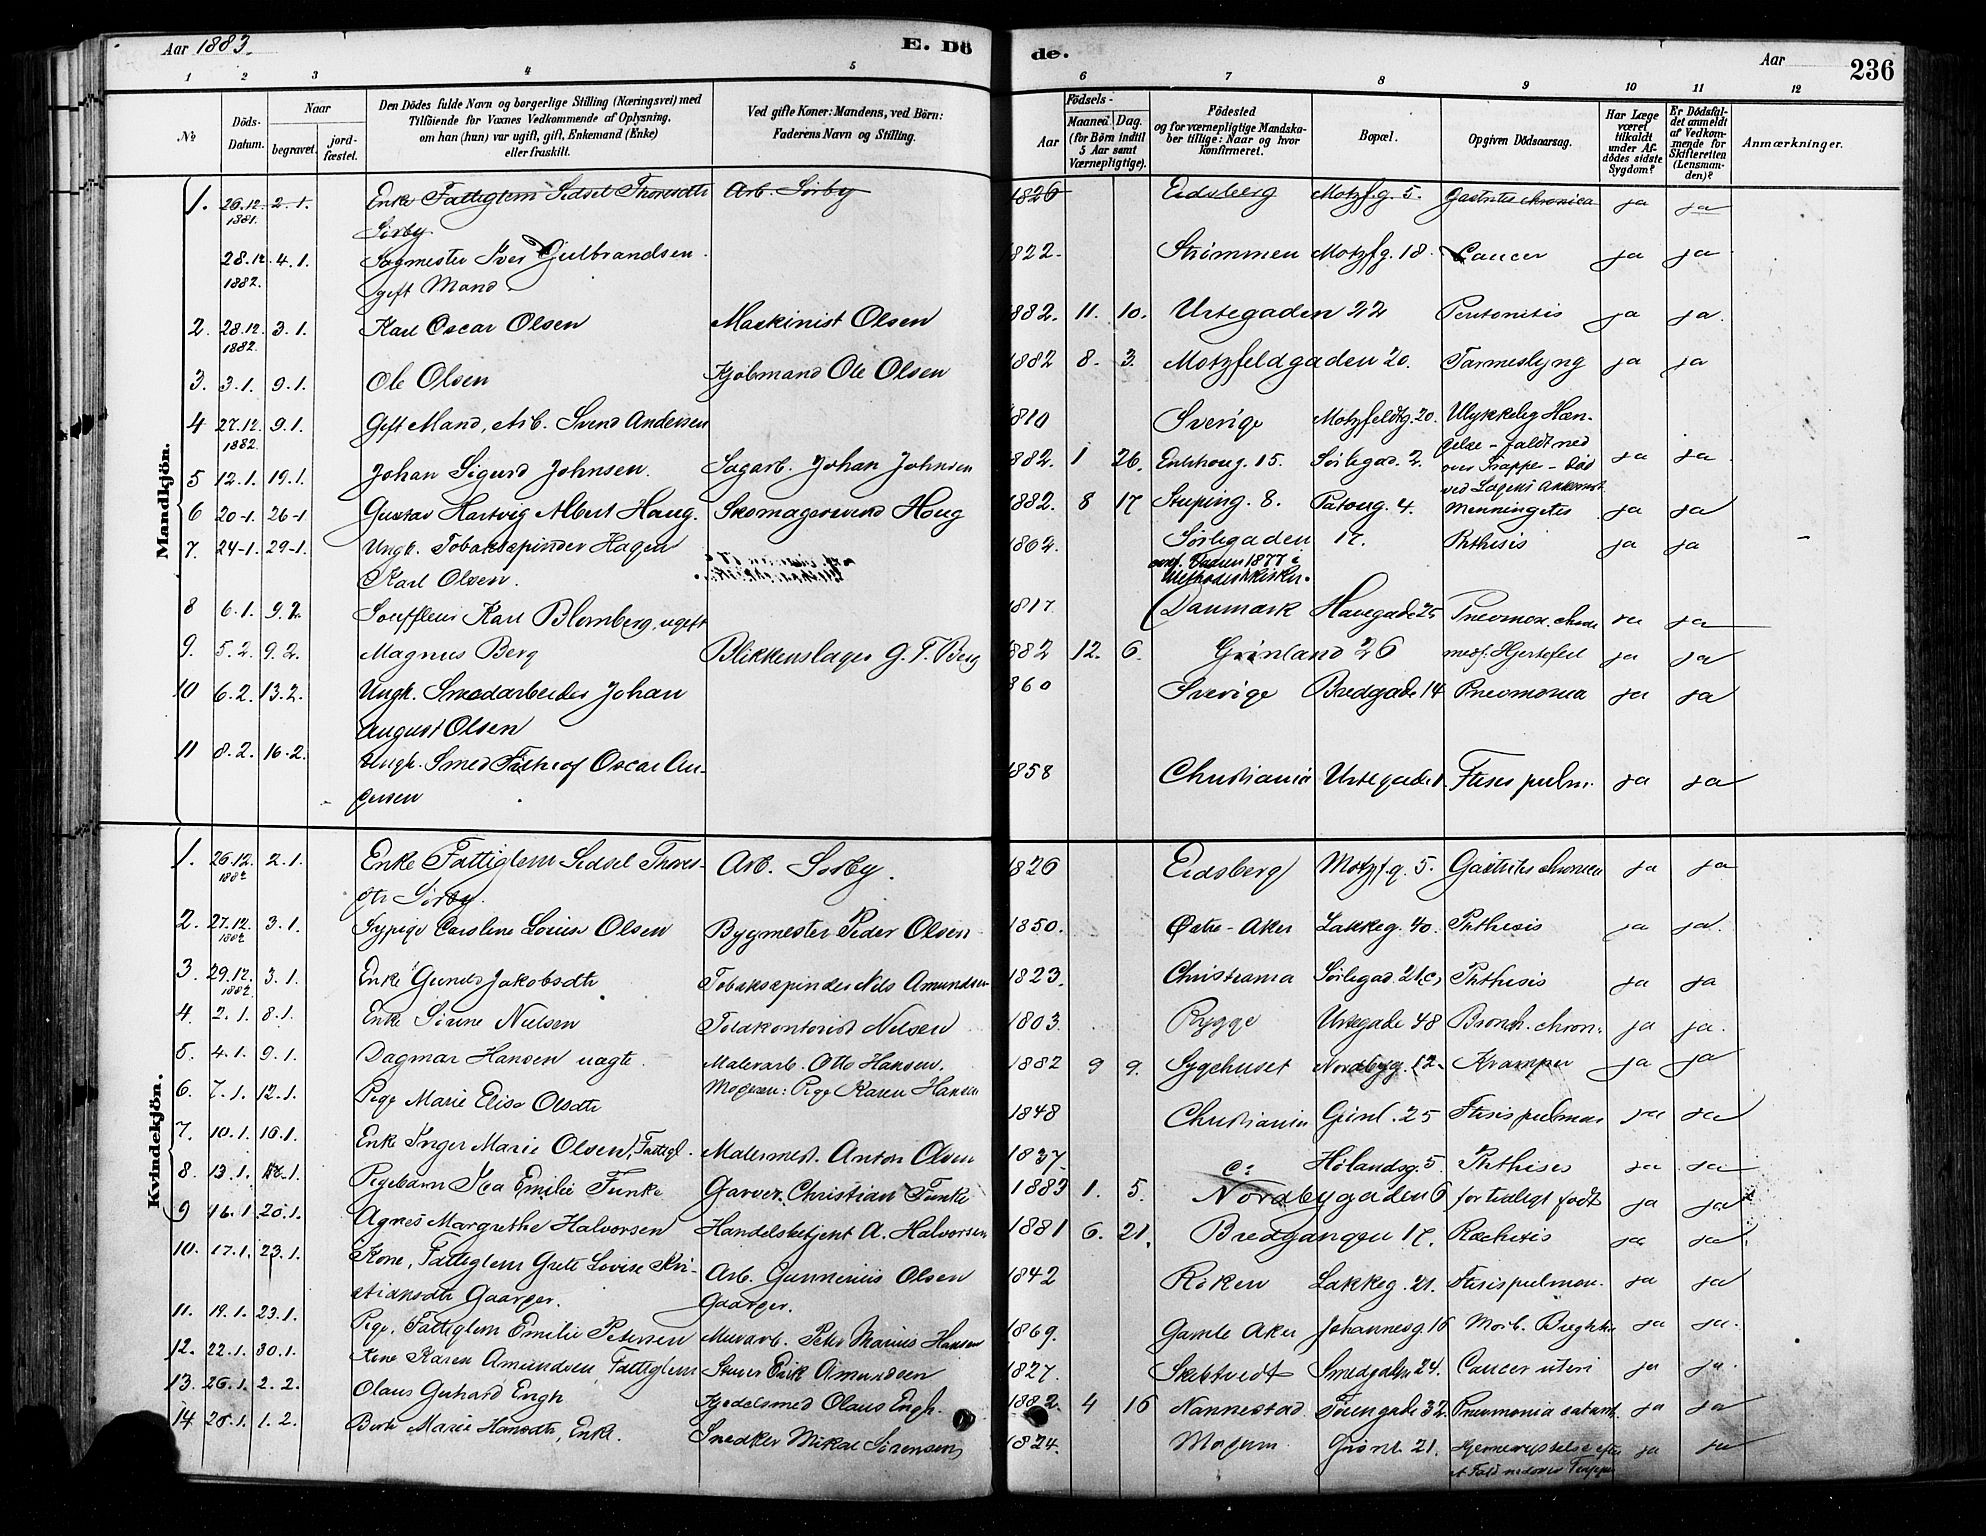 Aar 1883.
E. Dö
de.
Aar
236
1 2 3 4 5 6 7 8 9 10 11 12
No.
Döds-Datum.
Naar
begravet.
jord-fæstet.
Den Dödes fulde Navn og borgerlige Stilling (Næringsvei) med
Tilföiende for Voxnes Vedkommende af Oplysning,
om han (hun) var ugift, gift, Enkemand (Enke)
eller fraskilt.
Ved gifte Koner: Mandens, ved Börn:
Faderens Navn og Stilling.
Födsels-
Aar
Maaned.
Dag.
(for Börn indtil
5 Aar samt
Værnepligtige).
Födested
og for værnepligtige Mandska-
ber tillige: Naar og hvor
konfirmeret.
Bopæl.
Opgiven Dödsaarsag.
Har Læge
været
tilkaldt
under Af-
dödes sidste
Sygdom?
Er Dödsfal-
det anmeldt
af Vedkom-
mende for
Skifteretten
(Lensman-
den)?
Anmærkninger.
Mandkjön.
1. 26.12. 1881. 2.1. Enke Fattiglem Sidsel Thoresdtr Arb. Sørby 1826 Eidsberg Motzf.g. 5. Gastrites chronica ja ja
Sørby
28.12 1882. 4.1. Sagmester Iver Gulbrandsen 1822. Strømmen Motzf.g. 18. Cancer ja ja
gift Mand.
2. 28.12. 1882. 3.1. Karl Oscar Olsen Maskinist Olsen 1882. 11. 10. Urtegaden 22 Peritonitis ja ja.
3. 3.1. 9.1. Ole Olsen Kjøbmand Ole Olsen 1882 8. 3. Motzfeldgaden 20. Tarmeslyng ja ja
4 27.12. 1882. 9.1. Gift Mand, Arb. Svend Andersen 1810 Sverige Motzfeldtg. 20. Ulykkelig Hæn-
delse - faldt ned ja ja
over Trappe - død
ved Lægens Ankomst
5 12.1. 19.1. Johan Sigurd Johnsen. Sagarb. Johan Johnsen 1882. 1 26. Enkhoug. 15. Sørlegad. 2.
6 20-1. 26-1 Gustav Hartvig Albert Haug. Skomagersvend Haug 1882. 8 17 Stuping. 8. Patoug. 4. Menningetes ja ja
7. 24-1. 29-1. Ungk. Tobakspinder Hagen 1862. Sørlegaden 17. Phthisis ja ja
Karl Olsen. 1877 i
8 6.1. 9.2. Souffleur Karl Blomberg, ugift 1817. Danmark Havegade 25 ja
9. 5.2. 9.2. Magnus Berg Blikkenslager G. T. Berg 1882 12. 6. Grønland 26 medf. Hjertefeil ja ja
10 6.2. 13.2. Ungk. Smedarbeider Johan 1860 Sverige Bredgade 14 Pneumonia ja ja
August Olsen
11 8.2. 16.2. Ungk. Smed Oscar An- 1858 Christiania Urtegade 1. Ftisis pulm. ja ja
dersen
Kvindekjön.
1. 26.12. 1882 2.1. Enke Fattiglem Sidsel Thores- Arb. Sørby. 1826 Eidsberg Motzf.g. 5. Gastrites chronica ja ja
dtr Sørby.
2. 27.12. 1882 3.1. Sypige Caroline Louise Olsen Bygmester Peder Olsen 1850. Østre-Aker Lakkeg. 40. Phthesis ja ja.
3. 29.12. 1882 3.1. Enke Jakobsdtr Tobakspinder Nils Amundsen 1823. Christiania Sørlegad. 21c, Phthesis ja ja
4. 2.1. 8.1. Enke Sørine Nielsen Toldkontorist Nielsen 1803. Rygge Urtegade 48 Bronch. chron. ja ja.
5. 4.1. 9.1. Dagmar Hansen uægte. Malerarb. Otto Hansen. 1882 9 9. Sygehuset Nordbyg. 12. Kramper ja ja
Moderen: Pige Karen Hansen
6. 7.1. 12.1. Pige Marie Elise Olsdtr 1848 Christiania Grønl. 25 Ftisis pulmon ja ja
7. 10.1. 16.1. Enke Inger Marie Olsen, Fattigl. Malermest. Anton Olsen 1837. Hølandsg. 5. Phthises ja ja
8. 13.1. Pigebarn Emilie Funke Garver Christian Funke 1883 1. 5. Nordbygaden 6 for tidligt født ja ja
9 16.1 20.1. Agnes Margrethe Halvorsen Handelsbetjent A. Halvorsen 1881 6. 21. Bredgangen 17. Rachitis ja ja
10. 17.1. 23.1. Kone, Fattiglem Grete Lovise Kri- Arb. Gunnerius Olsen 1842 Røken Lakkeg. 21. Ftisis pulmon. ja ja
stiansdtr Gaarger. Gaarger.
11. 19.1. 23.1. Pige, Fattiglem Emilie Petersen Murarb. Peter Marius Hansen 1869. Gamle Aker Johannesg. 16 Morb. ja ja.
12. 22.1. 30.1. Kone Karen Amundsen, Fattiglem Stuer Erik Amundsen 1827. Skibtvedt Smedgaden 24. Cancer uteri ja ja.
13. 26.1. 2.2. Olaus Gerhard Engh Kjedelsmed Olaus Engh. 1882. 4 16 Nannestad Tøiengade 32. Pneumonia ja ja
14 28.1. 1.2. Berte Marie Hansdtr, Enke. Snedker Mikal Sørensen 1824. Modum Grønl. 21. Hjernerystelse efter ja ja
et Fald nedover Trappe